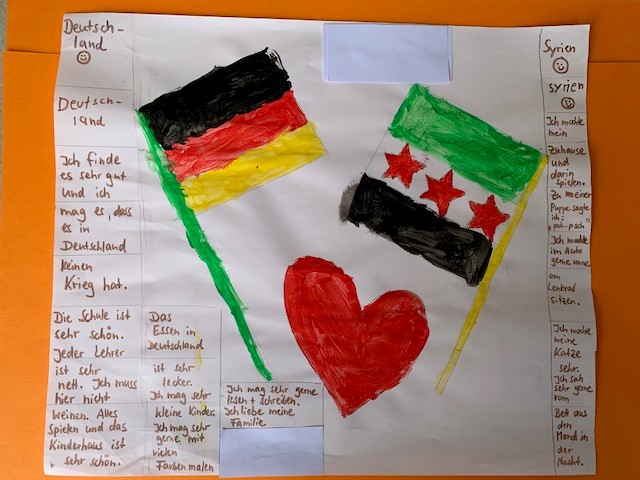 Deutsch-
land
Deutsch-
land
Ich finde
es sehr gut
und ich
mag es, dass
es in
Deutschland
keinen
Krieg hat.
Die Schule ist
sehr schön.
Jeder Lehrer
ist sehr
nett. Ich muss
hier nicht
weinen. Alles
spielen und das
Kinderhaus ist
sehr schön.
Das
Essen in
Deutschland
ist sehr
lecker.
Ich mag sehr
kleine Kinder.
Ich mag sehr
gerne mit
vielen
Farben malen
Ich mag sehr gerne
lesen + schreiben.
Ich liebe meine
Familie
Syrien
syrien
Ich mochte
mein
Zuhause
und
darin
spielen.
Zu meiner
Puppe sagte
ich:
"psh-psch"
Ich mochte
im Auto
gerne vorne
am
Lenkrad
sitzen.
Ich mochte
meine
Katze
sehr.
Ich sah
sehr gerne
vom
Bett aus
den
Mond in
der
Nacht.